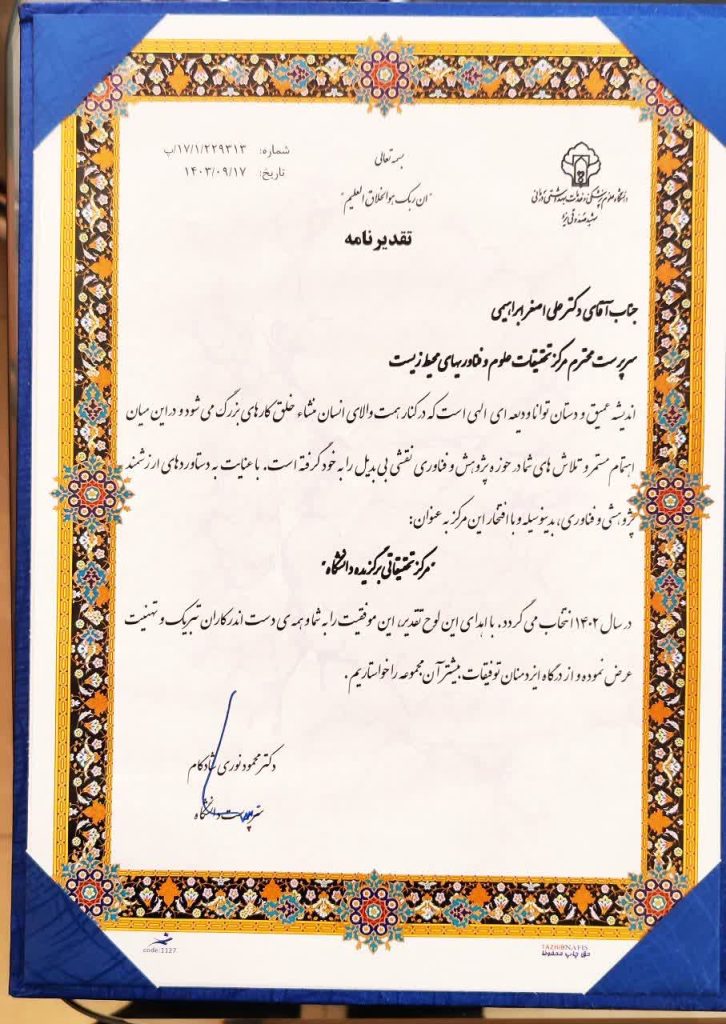 بسمه تعالی
"ان ربک هو الخلاق العلیم"
شماره: ۱۷/۱/۲۲۹۳۱۳/پ
تاریخ: ۱۴۰۳/۰۹/۱۷
دانشگاه علوم پزشکی و خدمات بهداشتی درمانی
شهید صدوقی یزد
تقدیرنامه
جناب آقای دکتر علی اصغر ابراهیمی
سرپرست محترم مرکز تحقیقات علوم و فناوریهای محیط زیست
اندیشه عمیق و دستان توانا ودیعه ای الهی است که در کنار همت والای انسان منشاء خلق کارهای بزرگ می شود و در این میان
اهتمام مستمر و تلاش های شما در حوزه پژوهش و فناوری نقشی بی بدیل را به خود گرفته است. با عنایت به دستاوردهای ارزشمند
پژوهشی و فناوری، بدینوسیله و با افتخار این مرکز به عنوان:
"مرکز تحقیقاتی برگزیده دانشگاه"
در سال ۱۴۰۲ انتخاب می گردد. با اهدای این لوح تقدیر، این موفقیت را به شما و همه ی دست اندرکاران تبریک و تهنیت
عرض نموده و از درگاه ایزد منان توفیقات بیشتر آن مجموعه را خواستاریم.
دکتر محمود نوری شادکام
سرپرست دانشگاه
code:1127
TAZHIBNAFIS
حق چاپ محفوظ